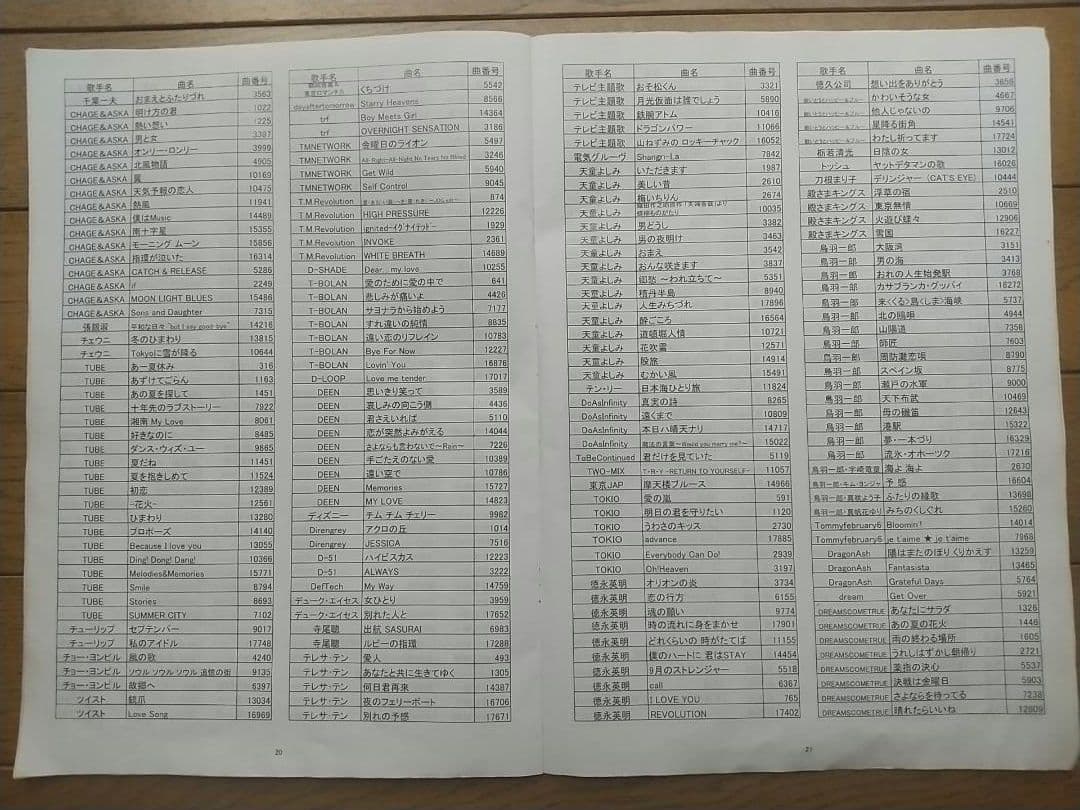 歌手名 曲名 曲番号
千葉一夫 おまえとふたりづれ 3563
CHAGE&ASKA 明け方の君 1022
CHAGE&ASKA 熱い想い 1225
CHAGE&ASKA 男と女 3387
CHAGE&ASKA オンリー・ロンリー 3999
CHAGE&ASKA 北風物語 4905
CHAGE&ASKA 翼 10169
CHAGE&ASKA 天気予報の恋人 10475
CHAGE&ASKA 熱風 11941
CHAGE&ASKA 僕はMusic 14489
CHAGE&ASKA 南十字星 15355
CHAGE&ASKA モーニング ムーン 15856
CHAGE&ASKA 指環が泣いた 16314
CHAGE&ASKA CATCH & RELEASE 5286
CHAGE&ASKA if 2249
CHAGE&ASKA MOON LIGHT BLUES 15486
CHAGE&ASKA Sons and Daughter 7315
張銀淑 平和な日々 "but I say good-bye" 14216
チェウニ 冬のひまわり 13815
チェウニ Tokyoに雪が降る 10644
TUBE あー夏休み 316
TUBE あずけてごらん 1163
TUBE あの夏を探して 1451
TUBE 十年先のラブストーリー 7922
TUBE 湘南 My Love 8061
TUBE 好きなのに 8485
TUBE ダンス・ウィズ・ユー 9665
TUBE 夏だね 11451
TUBE 夏を抱きしめて 11524
TUBE 初恋 12389
TUBE -花火- 12561
TUBE ひまわり 13280
TUBE プロポーズ 14140
TUBE Because I love you 13055
TUBE Ding! Dong! Dang! 10366
TUBE Melodies&Memories 15771
TUBE Smile 8794
TUBE Stories 8693
TUBE SUMMER CITY 7102
チューリップ セプテンバー 9017
チューリップ 私のアイドル 17748
チョー・ヨンピル 風の歌 4240
チョー・ヨンピル ソウル ソウル ソウル 追憶の街 9135
チョー・ヨンピル 故郷へ 5397
ツイスト 銃爪 13034
ツイスト Love Song 16969
20
歌手名 曲名 曲番号
くちづけ 5542
dayaftertomorrow Starry Heavens 8566
trf Boy Meets Girl 14364
trf OVERNIGHT SENSATION 3186
TMNETWORK 金曜日のライオン 5497
TMNETWORK All-Right-All-Night No Tears No Blood 3246
TMNETWORK Get Wild 5940
TMNETWORK Self Control 9045
T.M.Revolution 874
T.M.Revolution HIGH PRESSURE 12226
T.M.Revolution ignited-イグナイテッド- 1929
T.M.Revolution INVOKE 2361
T.M.Revolution WHITE BREATH 14689
D-SHADE Dear... my love 10255
T-BOLAN 愛のために愛の中で 641
T-BOLAN 悲しみが痛いよ 4426
T-BOLAN サヨナラから始めよう 7177
T-BOLAN すれ違いの純情 8835
T-BOLAN 遠い恋のリフレイン 10783
T-BOLAN Bye For Now 12227
T-BOLAN Lovin' You 16876
D-LOOP Love me tender 17017
DEEN 思いきり笑って 3589
DEEN 哀しみの向こう側 4436
DEEN 君さえいれば 5110
DEEN 恋が突然よみがえる 14044
DEEN さよならも言わないで～Rain～ 7226
DEEN 手ごたえのない愛 10389
DEEN 遠い空で 10786
DEEN Memories 15727
DEEN MY LOVE 14823
ディズニー チム チム チェリー 9982
Direngrey アクロの丘 1014
Direngrey JESSICA 7516
D-51 ハイビスカス 12223
D-51 ALWAYS 3222
DefTech My Way 14759
デューク・エイセス 女ひとり 3959
デューク・エイセス 別れた人と 17652
寺尾聰 出航 SASURAI 6983
寺尾聰 ルビーの指環 17288
テレサ・テン 愛人 493
テレサ・テン あなたと共に生きてゆく 1305
テレサ・テン 何日君再来 14387
テレサ・テン 夜のフェリーボート 16706
テレサ・テン 別れの予感 17671
歌手名 曲名 曲番号
テレビ主題歌 おそ松くん 3321
テレビ主題歌 月光仮面は誰でしょう 5890
テレビ主題歌 鉄腕アトム 10416
テレビ主題歌 ドラゴンパワー 11066
テレビ主題歌 山ねずみの ロッキーチャック 16052
電気グルーヴ Shangri-La 7842
天童よしみ いただきます 1987
天童よしみ 美しい昔 2610
天童よしみ 梅いちりん 2674
天童よしみ 10035
天童よしみ 男どうし 3382
天童よしみ 男の夜明け 3463
天童よしみ おまえ 3542
天童よしみ おんな咲きます 3837
天童よしみ 郷愁 ～われ立ちて～ 5351
天童よしみ 積丹半島 8940
天童よしみ 人生みちづれ 17896
天童よしみ 酔ごころ 16564
天童よしみ 道頓堀人情 10721
天童よしみ 花吹雪 12571
天童よしみ 股旅 14914
天童よしみ むかい風 15491
テン・リー 日本海ひとり旅 11824
DoAsInfinity 真実の詩 8265
DoAsInfinity 遠くまで 10809
DoAsInfinity 本日ハ晴天ナリ 14717
DoAsInfinity 魔法の言葉～Would you marry me?～ 15022
ToBeContinued 君だけを見ていた 5119
TWO-MIX T・R・Y -RETURN TO YOURSELF- 11057
東京JAP 摩天楼ブルース 14966
TOKIO 愛の嵐 591
TOKIO 明日の君を守りたい 1120
TOKIO うわさのキッス 2730
TOKIO advance 17885
TOKIO Everybody Can Do! 2939
TOKIO Oh!Heaven 3197
徳永英明 オリオンの炎 3734
徳永英明 恋の行方 6155
徳永英明 魂の願い 9774
徳永英明 時の流れに身をまかせ 17901
徳永英明 どれくらいの 時がたてば 11155
徳永英明 僕のハートに 君はSTAY 14454
徳永英明 9月のストレンジャー 5518
徳永英明 call 6367
徳永英明 I LOVE YOU 765
徳永英明 REVOLUTION 17402
21
歌手名 曲名 曲番号
徳久公司 想い出をありがとう 3656
かわいそうな女 4667
他人じゃないの 9706
星降る街角 14541
わたし祈ってます 17724
栃若清光 日陰の女 13012
トッシュ ヤットデタマンの歌 16026
刀根まり子 デリンジャー (CAT'S EYE) 10444
殿さまキングス 浮草の宿 2510
殿さまキングス 東京無情 10669
殿さまキングス 火遊び蝶々 12906
殿さまキングス 雪国 16227
鳥羽一郎 大阪湾 3151
鳥羽一郎 男の海 3413
鳥羽一郎 おれの人生始発駅 3768
鳥羽一郎 カサブランカ・グッバイ 18272
鳥羽一郎 来<くる>島<しま>海峡 5737
鳥羽一郎 北の鴎唄 4944
鳥羽一郎 山陽道 7358
鳥羽一郎 師匠 7603
鳥羽一郎 周防灘恋唄 8790
鳥羽一郎 スペイン坂 8775
鳥羽一郎 瀬戸の水軍 9000
鳥羽一郎 天下布武 10469
鳥羽一郎 母の磯笛 12643
鳥羽一郎 港駅 15322
鳥羽一郎 夢・一本づり 16329
鳥羽一郎 流氷・オホーツク 17216
鳥羽一郎・宇崎竜童 海よ 海よ 2630
鳥羽一郎・キム・ヨンジャ 予 感 16604
鳥羽一郎・真咲よう子 ふたりの縁歌 13698
鳥羽一郎・真帆花ゆり みちのくしぐれ 15260
Tommyfebruary6 Bloomin! 14014
Tommyfebruary6 je t'aime ★ je t'aime 7968
DragonAsh 陽はまたのぼりくりかえす 13259
DragonAsh Fantasista 13465
DragonAsh Grateful Days 5764
dream Get Over 5921
DREAMSCOMETRUE あなたにサラダ 1326
DREAMSCOMETRUE あの夏の花火 1446
DREAMSCOMETRUE 雨の終わる場所 1605
DREAMSCOMETRUE うれしはずかし朝帰り 2721
DREAMSCOMETRUE 薬指の決心 5537
DREAMSCOMETRUE 決戦は金曜日 5903
DREAMSCOMETRUE さよならを待ってる 7238
DREAMSCOMETRUE 晴れたらいいね 12809